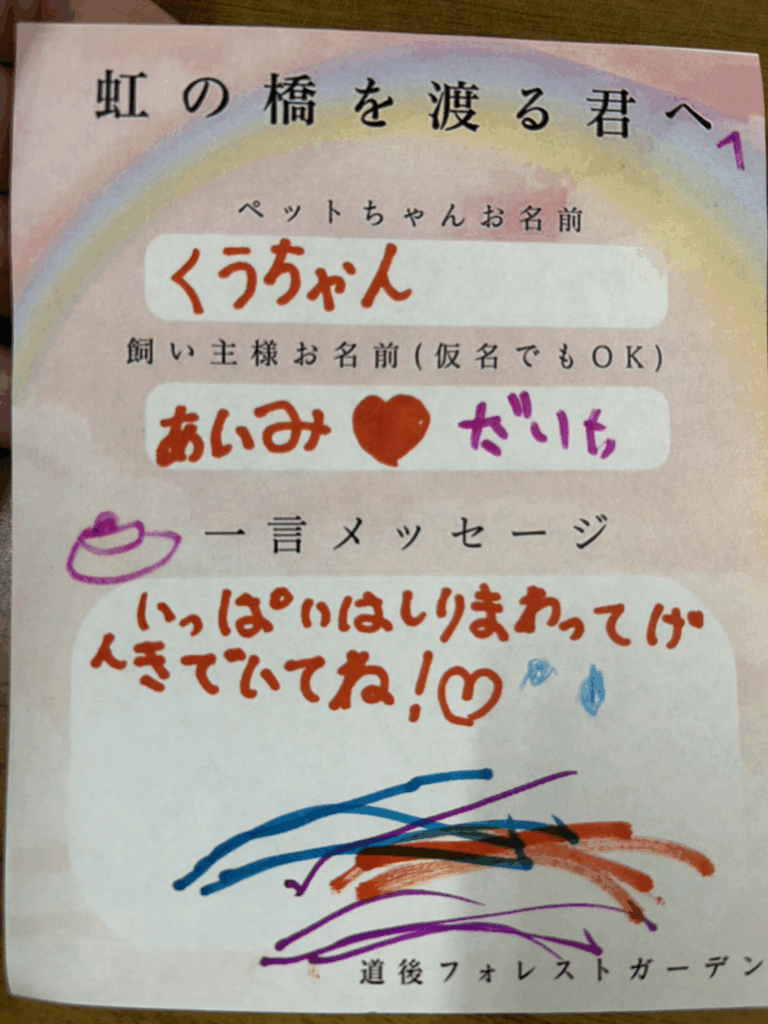 虹の橋を渡る君へ
ペットちゃんお名前
くうちゃん
飼い主様お名前(仮名でもOK)
あいみ♥だいち
一言メッセージ
いっぱいはしりまわってげ
んきでいてね!♡
道後フォレストガーデン